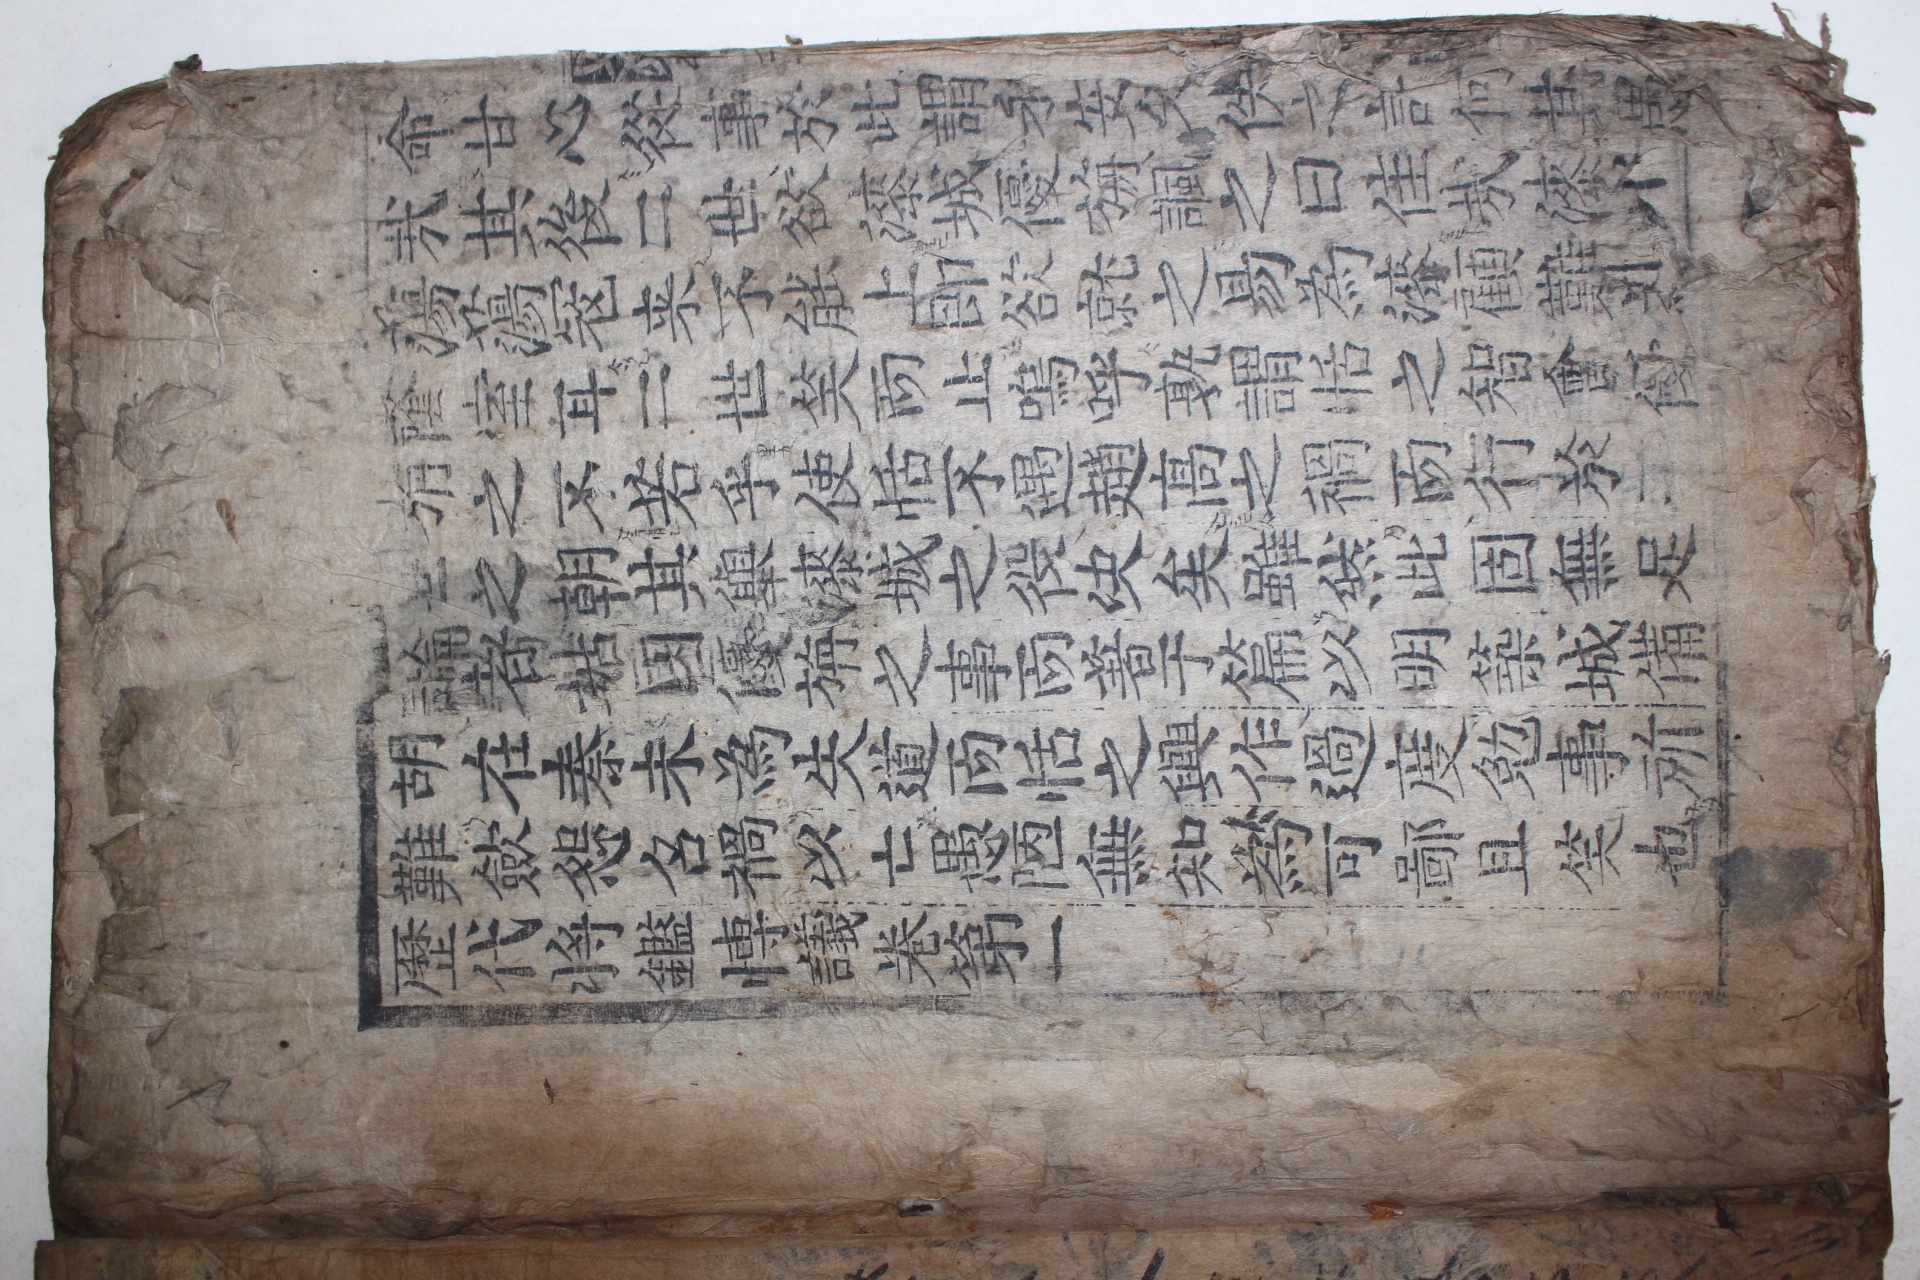 命甘心從事於此謂永安久佚之計何其愚
㢤其後二世欲漆城優旃諷之曰佳㢤漆
蕩蕩冦来不能上即欲就之易為漆顧難
蔭室耳二世笑而止嗚呼孰謂恬之智會優
旃之不若乎使恬不遇趙高之禍而行於二
世之朝其與漆城之役决矣雖然此固無足
論者姑因優旃之事而著于篇以明築城備
胡在秦未為失道而恬之興作過度勉事所
難歛怨名禍以亡愚陋無知為可鄙且笑也
歷代将鑑博議卷第一